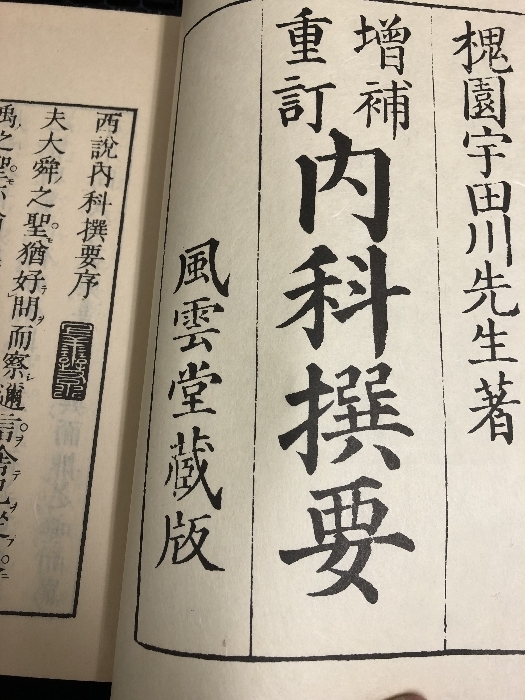 槐園宇田川先生著
増補
重訂
内科撰要
風雲堂蔵版
西說內科撰要序
夫大舜之聖猶好問而察邇言舍己
禹之聖